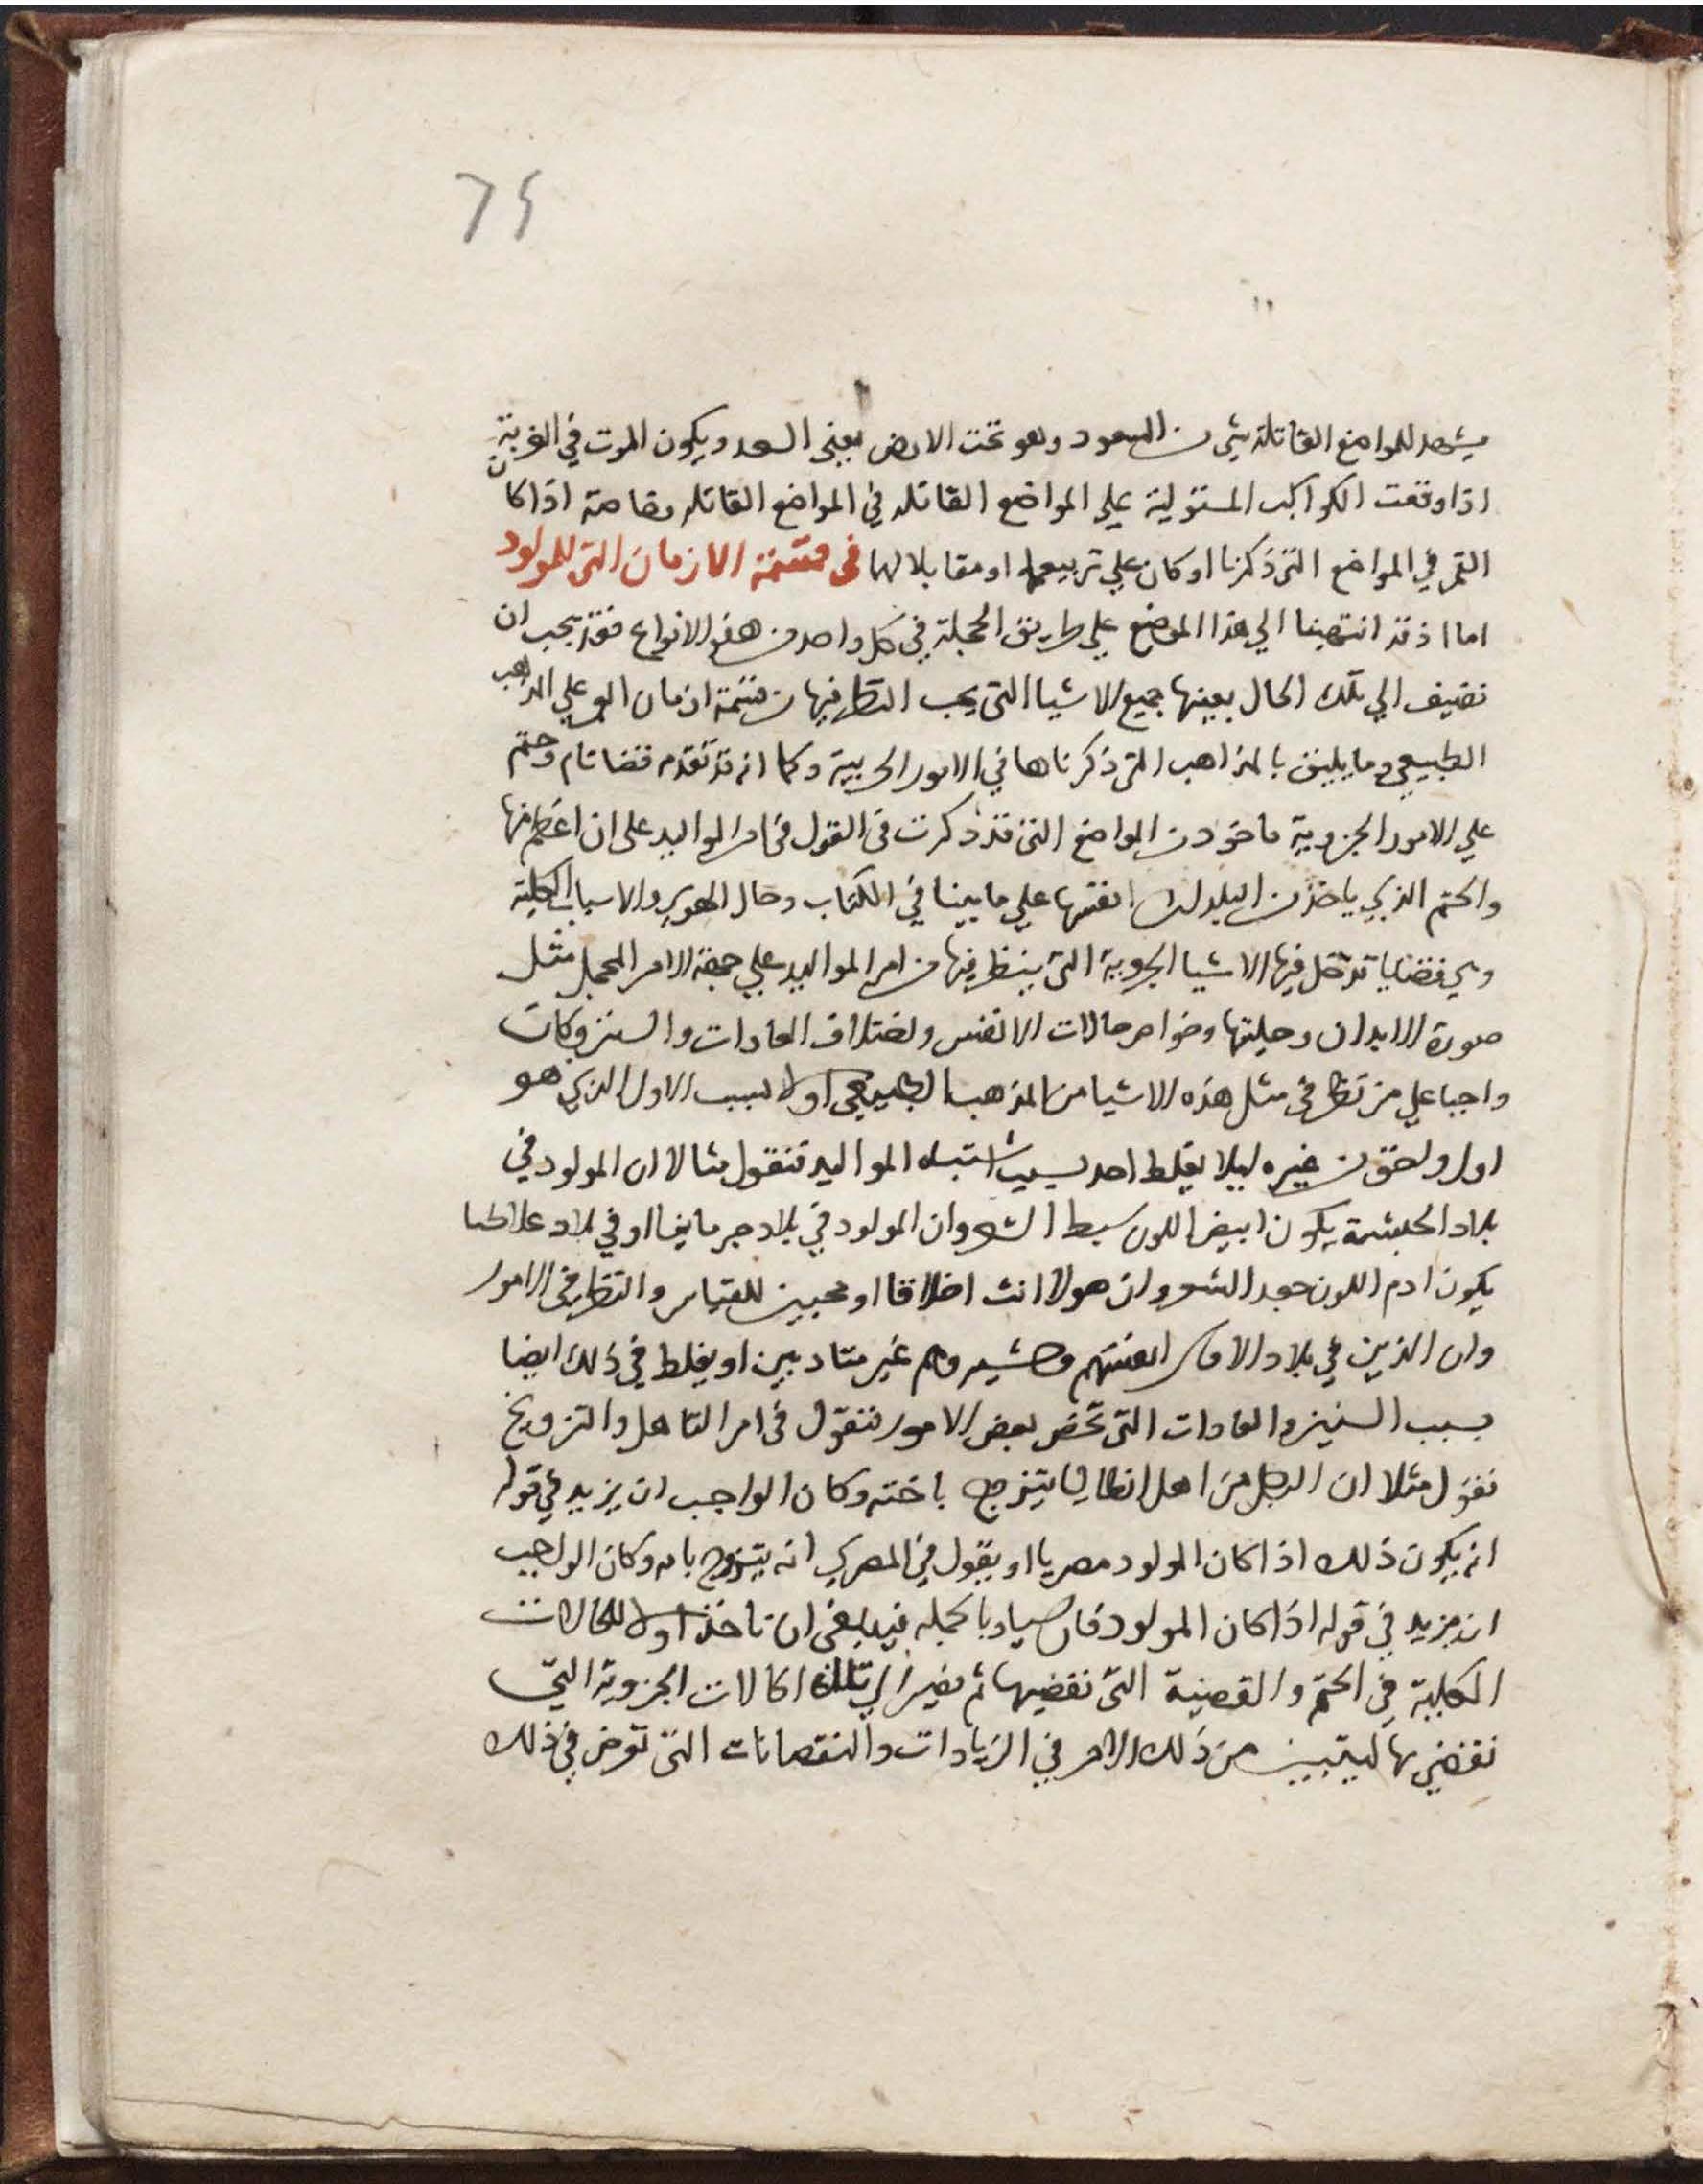 75
يشهد للمواضع القاتلة شي من السعود وهو تحت الارض يعني السعد ويكون الموت في الغربة
اذا وقعت الكواكب المستولية علي المواضع القاتله في المواضع القاتله وخاصة اذا كان
القمر في المواضع التي ذكرنا او كان علي تربيعها او مقابلا لها في قسمة الازمان التي للمولود
اما اذ قد انتهينا الي هذا الموضع علي طريق الجملة في كل واحد من هذه الانواع فقد يجب ان
نضيف الي تلك الحال بعينها جميع الاشيا التي يجب النظر فيها من قسمة ازمان علي المذهب
الطبيعي وما يليق بالمذاهب التي ذكرناها في الامور الجزيية وكما انه قد تقدم قضا تام وحتم
علي الامور الجزوية ماخوذ من المواضع التي قد ذكرت في القول في امر المواليد علي ان اعظم منها
والحتم الذي ياخذ من البلدان انفسها علي ما بينا في الكتاب وحال الهوي والاسباب الكلية
وهي قضايا تدخل فيها الاشيا الجزوية التي ينظر فيها من امر المواليد علي جهة الامر المجمل مثل
صورة الابدان وحليتها وخواص حالات الانفس واختلاف العادات والسنن وكان
واجبا علي من نظر في مثل هذه الاشيا من المذهب الطبيعي اولا لسبب الاول الذي هو
اول واحق من غيره ليلا يغلط احد بسبب اشتباه المواليد فنقول مثالا ان المولود في
بلاد الحبشة يكون ابيض اللون سبط الشعر وان المولود في بلاد جرمانيا او في بلاد علاطيا
يكون ادم اللون جعد الشعر وان هولا انث اخلاقا او محبين للقياس والنظر في الامور
وان الذين في بلاد انفسهم وهم غير متادبين او يغلط في ذلك ايضا
بسبب السنن والعادات التي تخص بعض الامور فنقول في امر التاهل والتزويج
نقول مثلا ان الرجل من اهل انطاليا يتزوج باخته وكان الواجب ان يزيد في قوله
انه يكون ذلك اذا كان المولود مصريا او يقول في المصري انه يتزوج بامه وكان الواجب
ان يزيد في قوله اذا كان المولود فارسيا وبالجمله فينبغي ان ناخذ اولا الحالات
الكلية في الحتم والقضية التي نقضيها ثم نضيف الي تلك الحالات الجزوية التي
نقضي بها ليتبين من ذلك الامر في الزيادات والنقصانات التي تعرض في ذلك